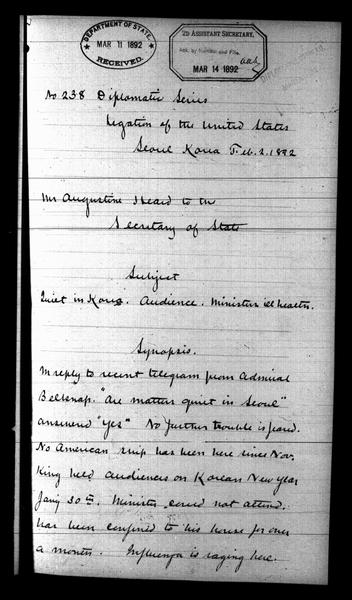 DEPARTMENT OF STATE,
MAR 11 1892
RECEIVED.
2D ASSISTANT SECRETARY,
Ack. by Number and File.
MAR 14 1892
No 238 Diplomatic Series
Legation of the United States
Seoul Korea Feb. 2. 1892
Mr Augustine Heard to the
Secretary of State
Subject
Quiet in Korea. Audience. Minister's ill health.
Synopsis.
In reply to recent telegram from Admiral
Belknap. "Are matters quiet in Seoul"
answered "Yes" No further trouble is feared.
No American ship has been here since Nov.
King held audiences on Korean New Year
Jany 30th. Minister could not attend.
has been confined to his house for over
a month. Influenza is raging here.